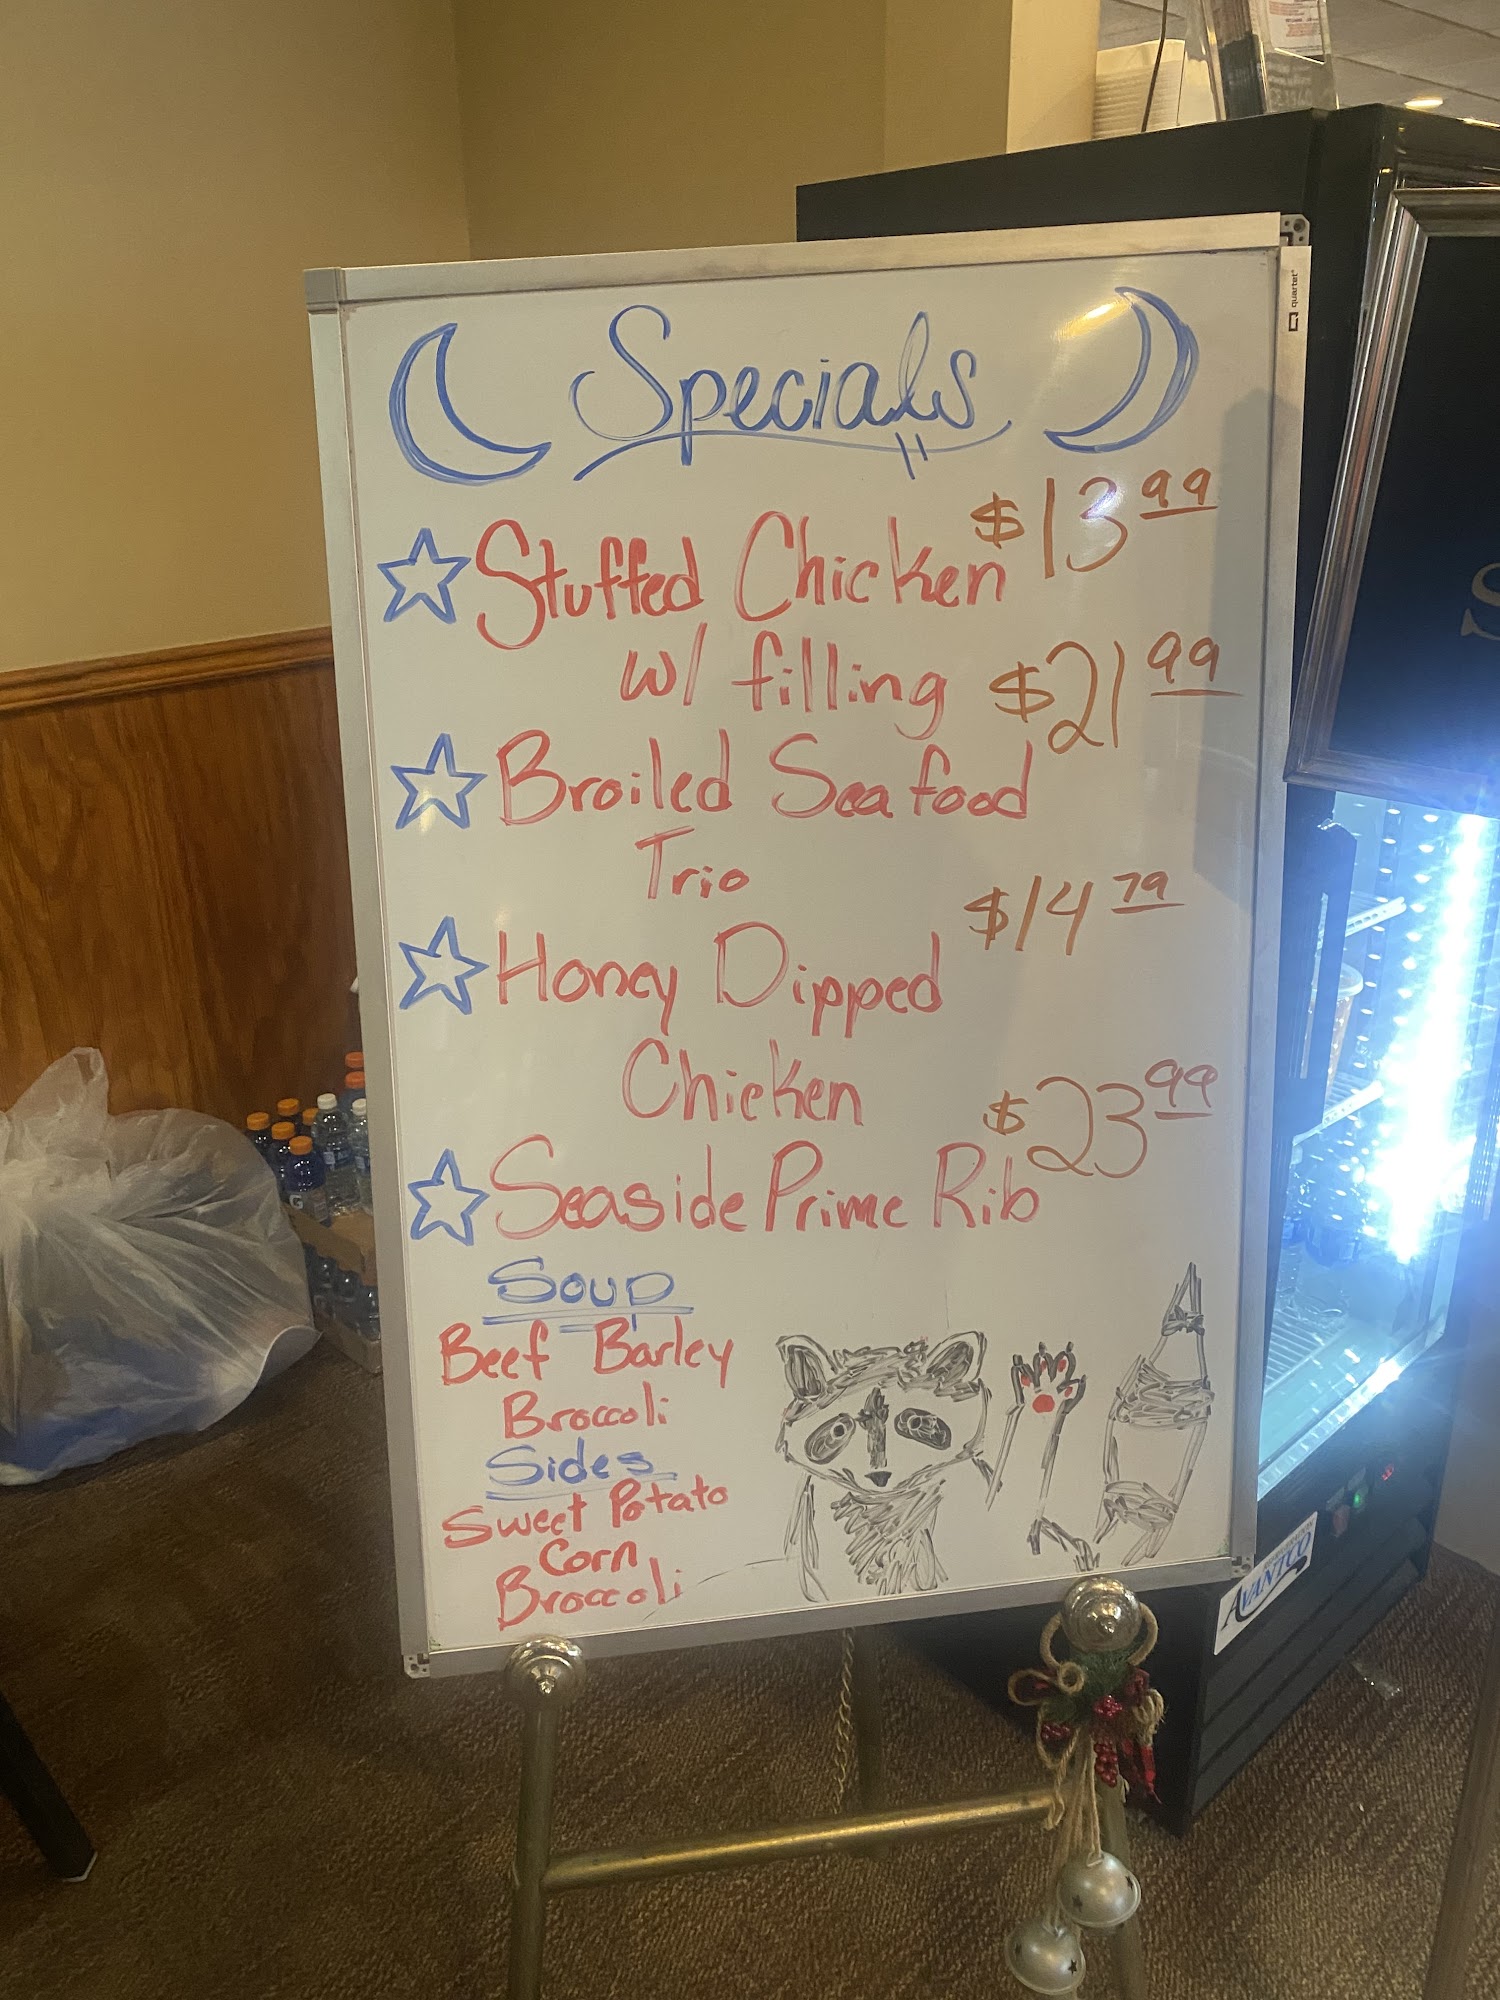 Specials
Stuffed Chicken $13.99
w/ filling
Broiled Seafood $21.99
Trio
Honey Dipped $14.79
Chicken
Seaside Prime Rib $23.99
Soup
Beef Barley
Broccoli
Sides
Sweet Potato
Corn
Broccoli
quartet
AVANTCO